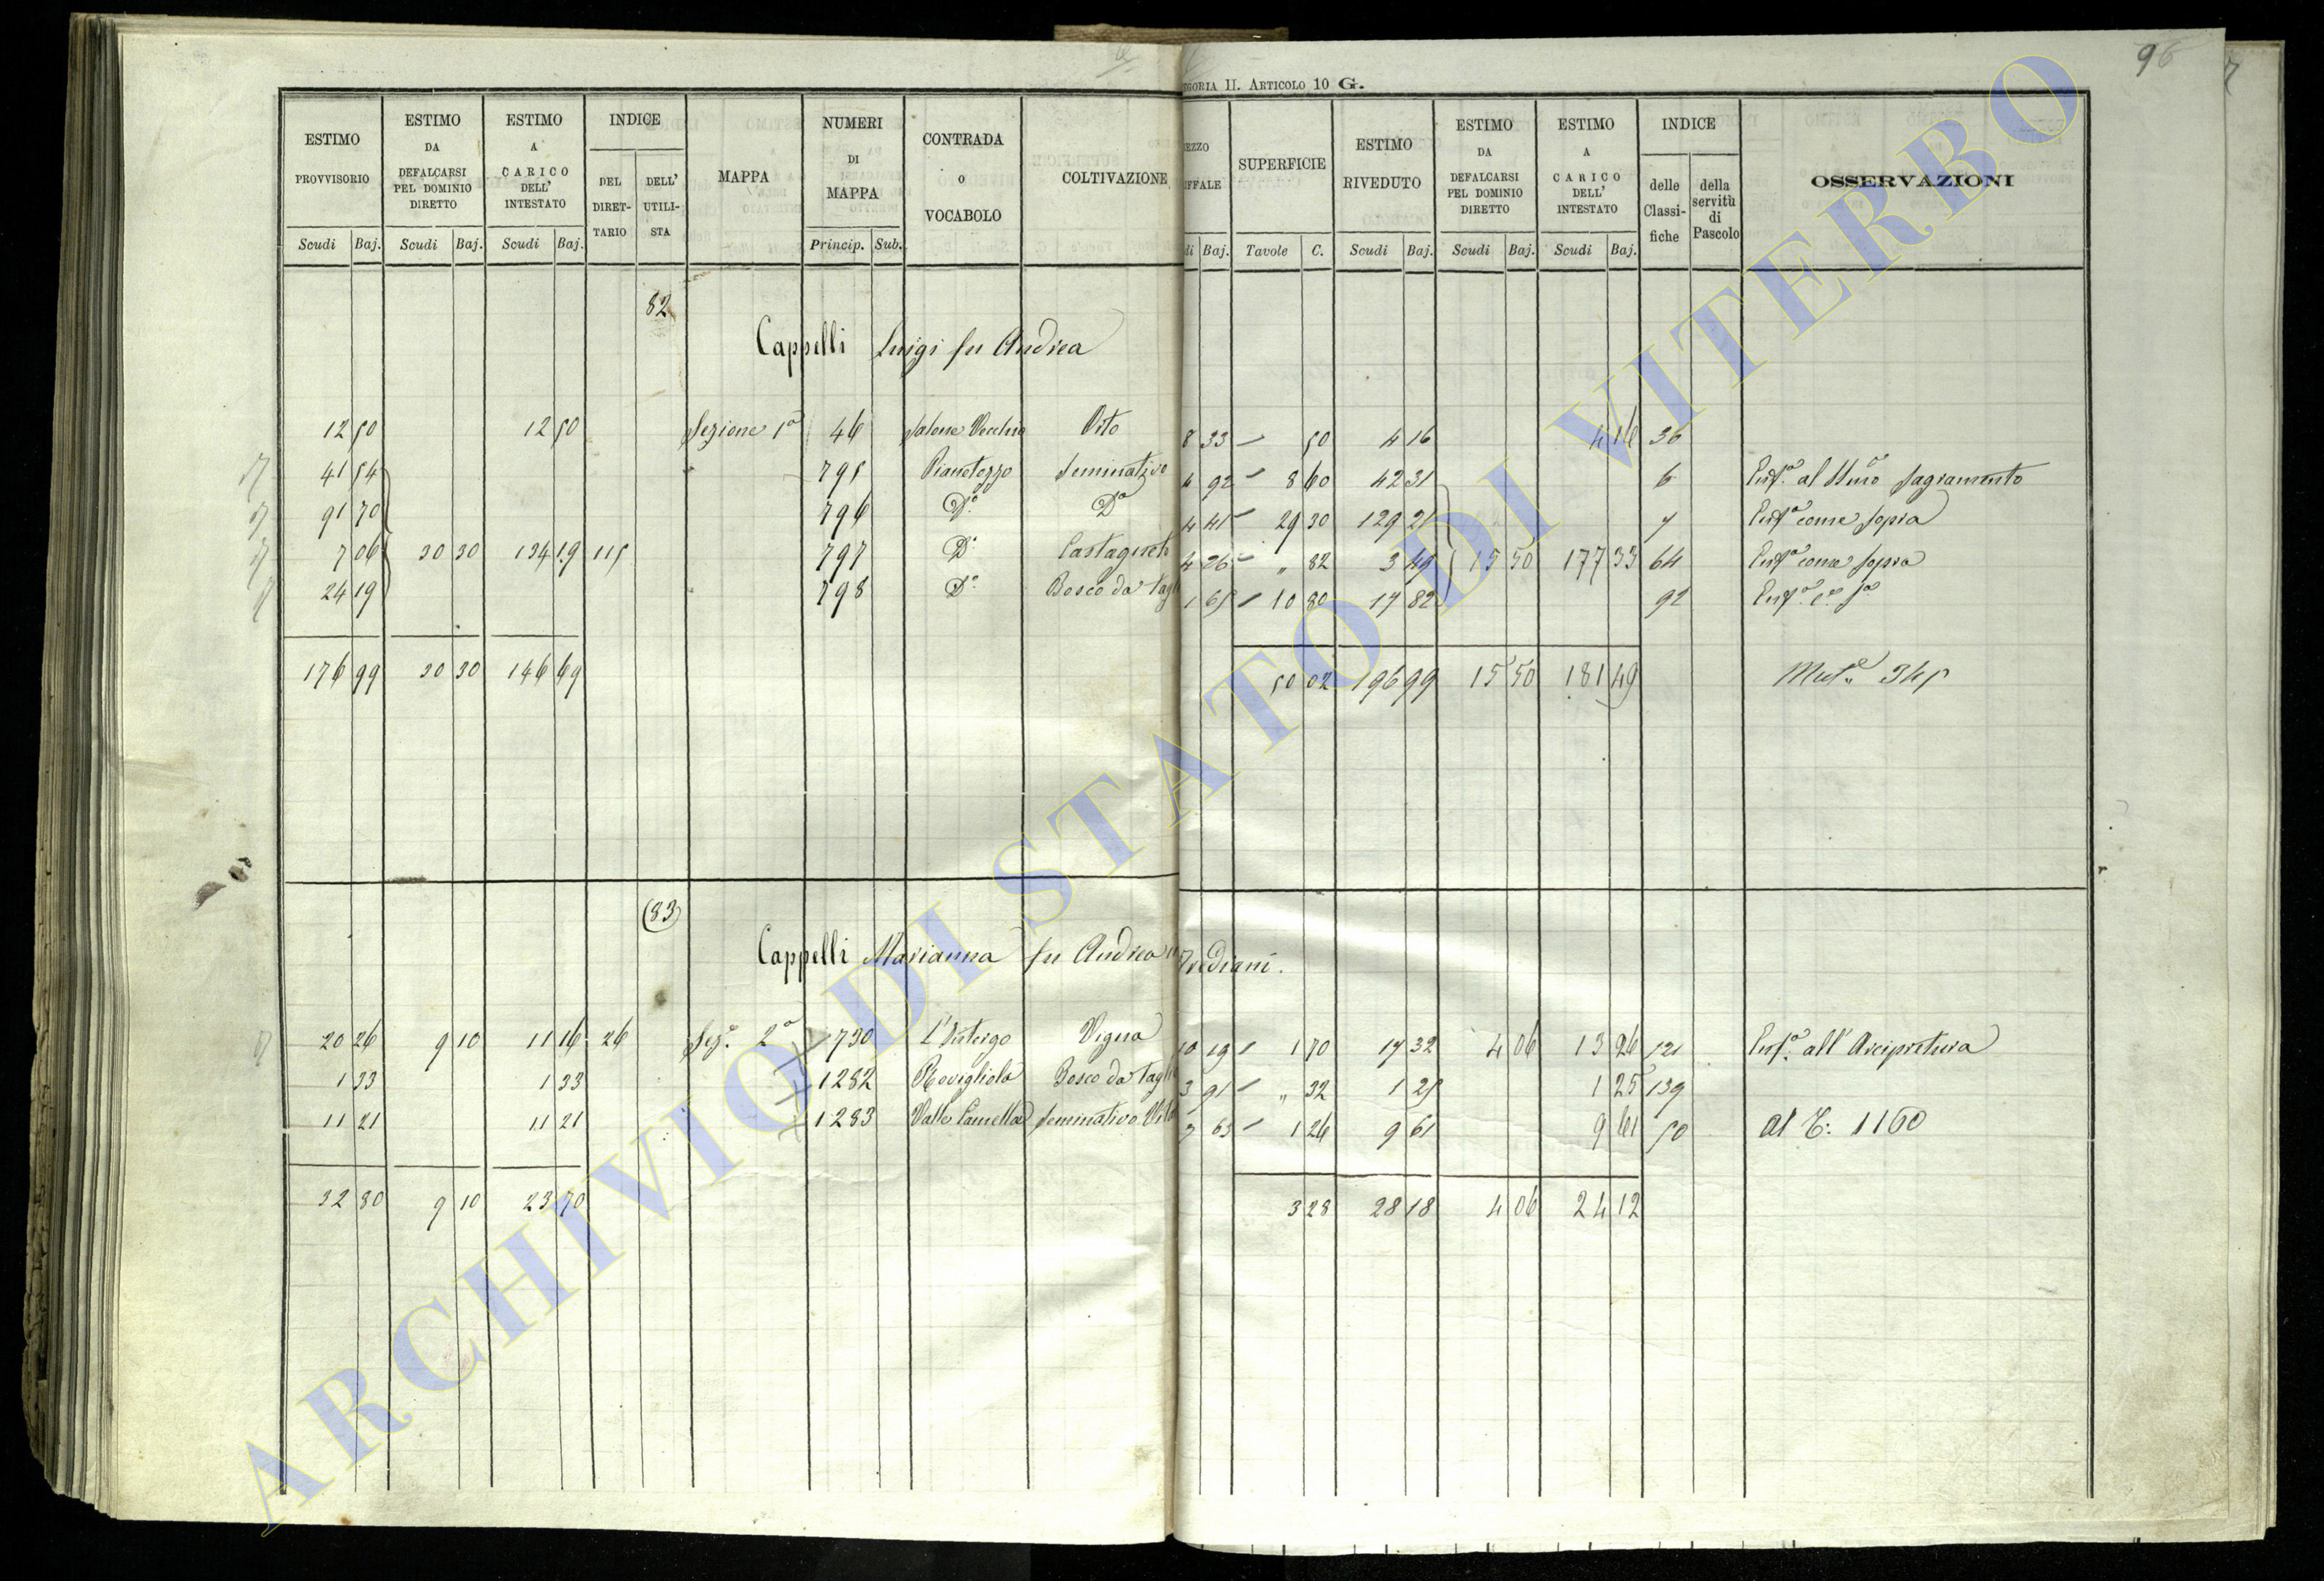 96
EGORIA II. ARTICOLO 10 G.
ESTIMO PROVVISORIO Scudi Baj.
ESTIMO DA DEFALCARSI PEL DOMINIO DIRETTO Scudi Baj.
ESTIMO A CARICO DELL' INTESTATO Scudi Baj.
INDICE DEL DIRETTARIO DELL' UTILISTA
MAPPA
NUMERI DI MAPPA Princip. Sub.
CONTRADA O VOCABOLO
COLTIVAZIONE
EZZO IFFALE di Baj.
SUPERFICIE Tavole C.
ESTIMO RIVEDUTO Scudi Baj.
ESTIMO DA DEFALCARSI PEL DOMINIO DIRETTO Scudi Baj.
ESTIMO A CARICO DELL' INTESTATO Scudi Baj.
INDICE delle Classifiche della servitù di Pascolo
OSSERVAZIONI
82
Cappelli Luigi fu Andrea
12 50 12 50 Sezione 1a 46 Vito 8 33 50 4 16 4 16 36
41 54 795 Pianetozzo Seminativo 4 92 8 60 42 31 6 Enfa. al SSmo Sagramento
91 70 796 Do. Do 4 41 29 30 129 21 7 Enfa come sopra
7 06 30 30 134 19 115 797 Do. Castagneto 4 26 " 82 3 49 15 50 177 33 64 Enfa come sopra
24 19 798 Do. Bosco da Tagl 1 65 10 80 17 82 92 Enfa. ca. Sa
176 99 30 30 146 69 50 02 196 99 15 50 181 49 Muta. 345
(83)
Cappelli Marianna fu Andrea in Frediani.
20 26 9 10 11 16 26 Seze. 2a 730 Vigna 10 19 1 70 17 32 4 06 13 26 121 Enfa. all' Arcipretura
1 33 1 33 1282 Rovigliola Bosco da Tagli 3 91 " 32 1 25 1 25 139
11 21 11 21 1283 Valle Camella Seminativo Vito 7 63 1 26 9 61 9 61 50 al C: 1160
32 80 9 10 23 70 3 28 28 18 4 06 24 12
ARCHIVIO DI STATO DI VITERBO